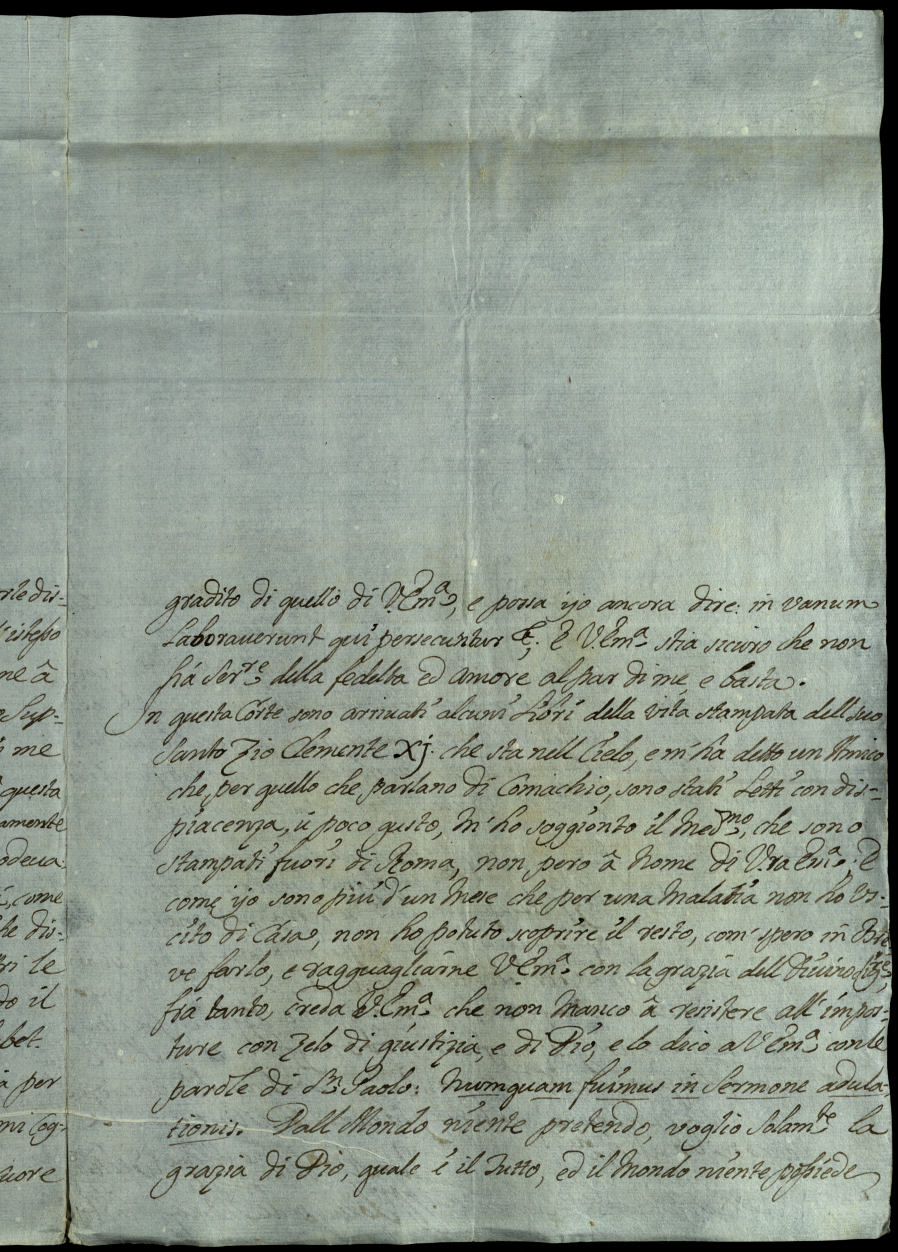 rle dis=
l'istesso
me â
e Sup=
i me
questa
amente
odeua
, come
he dis=
ri le
do il
bet.
à per
mi Cog=
uore
gradito di quello di V.Emª, e possa ijo ancora dire: in vanum
Laborauerunt qui persecuntur &c; E V.Emª stia sicuro che non
frá Serre della fedelta ed amore al par di me, e basta.
In questa Corte sono arriuati alcuni Libri della vita stampata dell suo
Santo Zio Clemente Xj. che sta nell Cielo, e m'ha detto un Amico
che, per quello che parlano di Comachio, sono stati Letti con dis=
piacenza, ú poco gusto, M'ho soggionto il Medmo, che sono
stampati fuori di Roma, non pero â Nome di V.ra Emª. E
come ijo sono piú d'un Mese che per una Malatia non ho Us=
cito di Casa, non ho potuto scoprire il resto, com' spero in Bre
ve farlo, e ragguagliarne V.Emª con la grazia dell Diuino
frá tanto, creda V.Emª che non Manco â resistere all'impos=
ture con Zelo di giustizia, e di Dio, e lo dico a V.Emª con le
parole di Sn Paolo: Numquam fuimus in Sermone adula=
tionis. Dall Mondo niente pretendo, voglio Solamte la
grazia di Dio, quale é il Tutto, ed il Mondo niente possiede